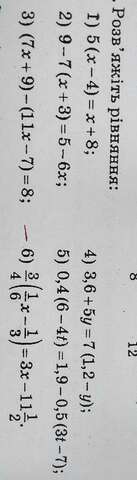 8 12
Розв'яжіть рівняння:
1) 5(x − 4) = x + 8;
2) 9 − 7(x + 3) = 5 − 6x;
3) (7x + 9) − (11x − 7) = 8;
4) 3,6 + 5y = 7(1,2 − y);
5) 0,4(6 − 4t) = 1,9 − 0,5(3t − 7);
6) 3/4(1/6x − 1/3) = 3x − 11 1/2.